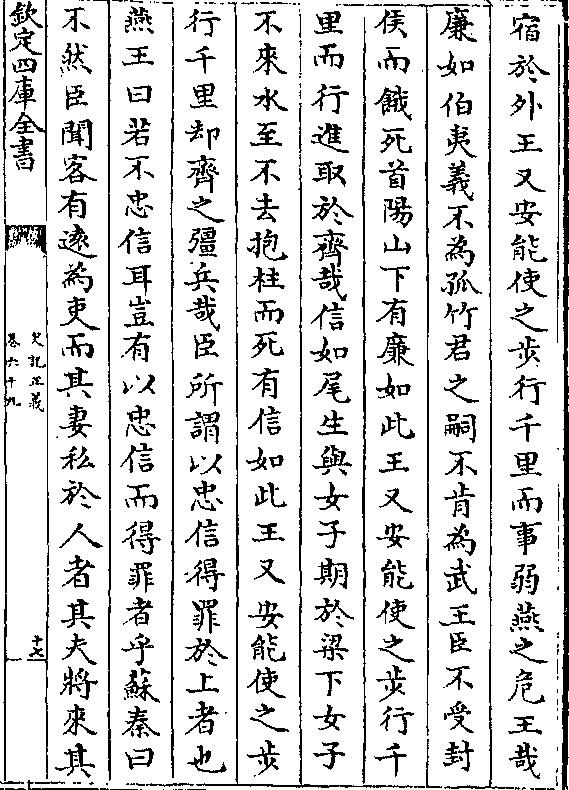 宿於外王又安能使之步行千里而事弱燕之危王哉
廉如伯夷義不為孤竹君之嗣不肯為武王臣不受封
侯而餓死首陽山下有廉如此王又安能使之步行千
里而行進取於齊哉信如尾生與女子期於梁下女子
不來水至不去抱柱而死有信如此王又安能使之步
行千里却齊之彊兵哉臣所謂以忠信得罪於上者也
燕王曰若不忠信耳豈有以忠信而得罪者乎蘇秦曰
不然臣聞客有逺為吏而其妻私於人者其夫將來其
欽定四庫全書
史記正義
卷六十九
十七